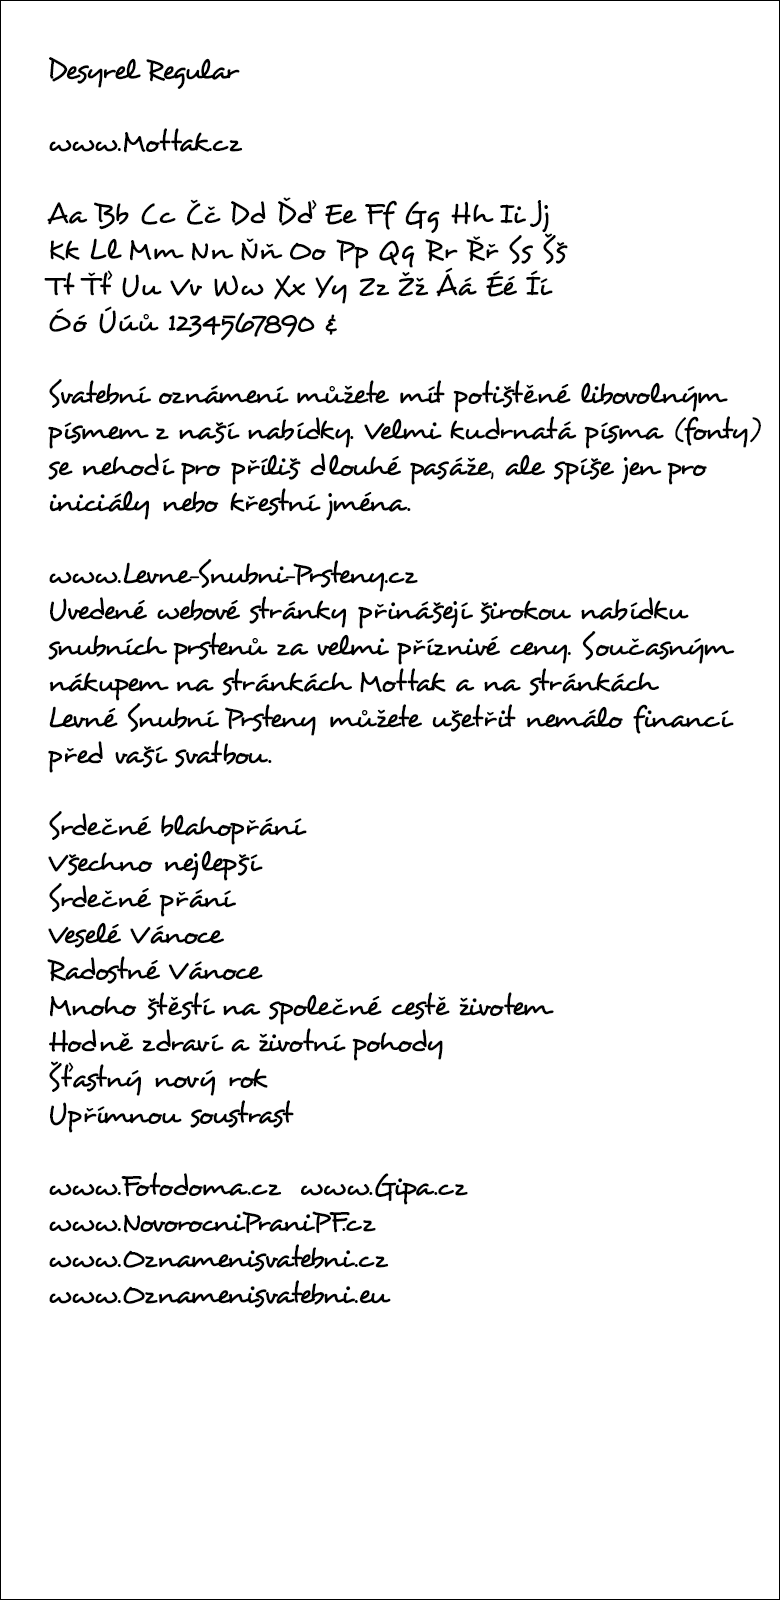 Desyrel Regular
www.Mottak.cz
Aa Bb Cc Čč Dd Ďď Ee Ff Gg Hh Ii Jj
Kk Ll Mm Nn Ňň Oo Pp Qq Rr Řř Ss Šš
Tt Ťť Uu Vv Ww Xx Yy Zz Žž Áá Éé Íí
Óó Úúů 1234567890 &
Svatební oznámení můžete mít potištěné libovolným
písmem z naší nabídky. Velmi kudrnatá písma (fonty)
se nehodí pro příliš dlouhé pasáže, ale spíše jen pro
iniciály nebo křestní jména.
www.Levne-Snubni-Prsteny.cz
Uvedené webové stránky přinášejí širokou nabídku
snubních prstenů za velmi příznivé ceny. Současným
nákupem na stránkách Mottak a na stránkách
Levné Snubní Prsteny můžete ušetřit nemálo financí
před vaší svatbou.
Srdečné blahopřání
Všechno nejlepší
Srdečné přání
Veselé Vánoce
Radostné Vánoce
Mnoho štěstí na společné cestě životem
Hodně zdraví a životní pohody
Šťastný nový rok
Upřímnou soustrast
www.Fotodoma.cz www.Gipa.cz
www.NovorocniPraniPF.cz
www.Oznamenisvatebni.cz
www.Oznamenisvatebni.eu